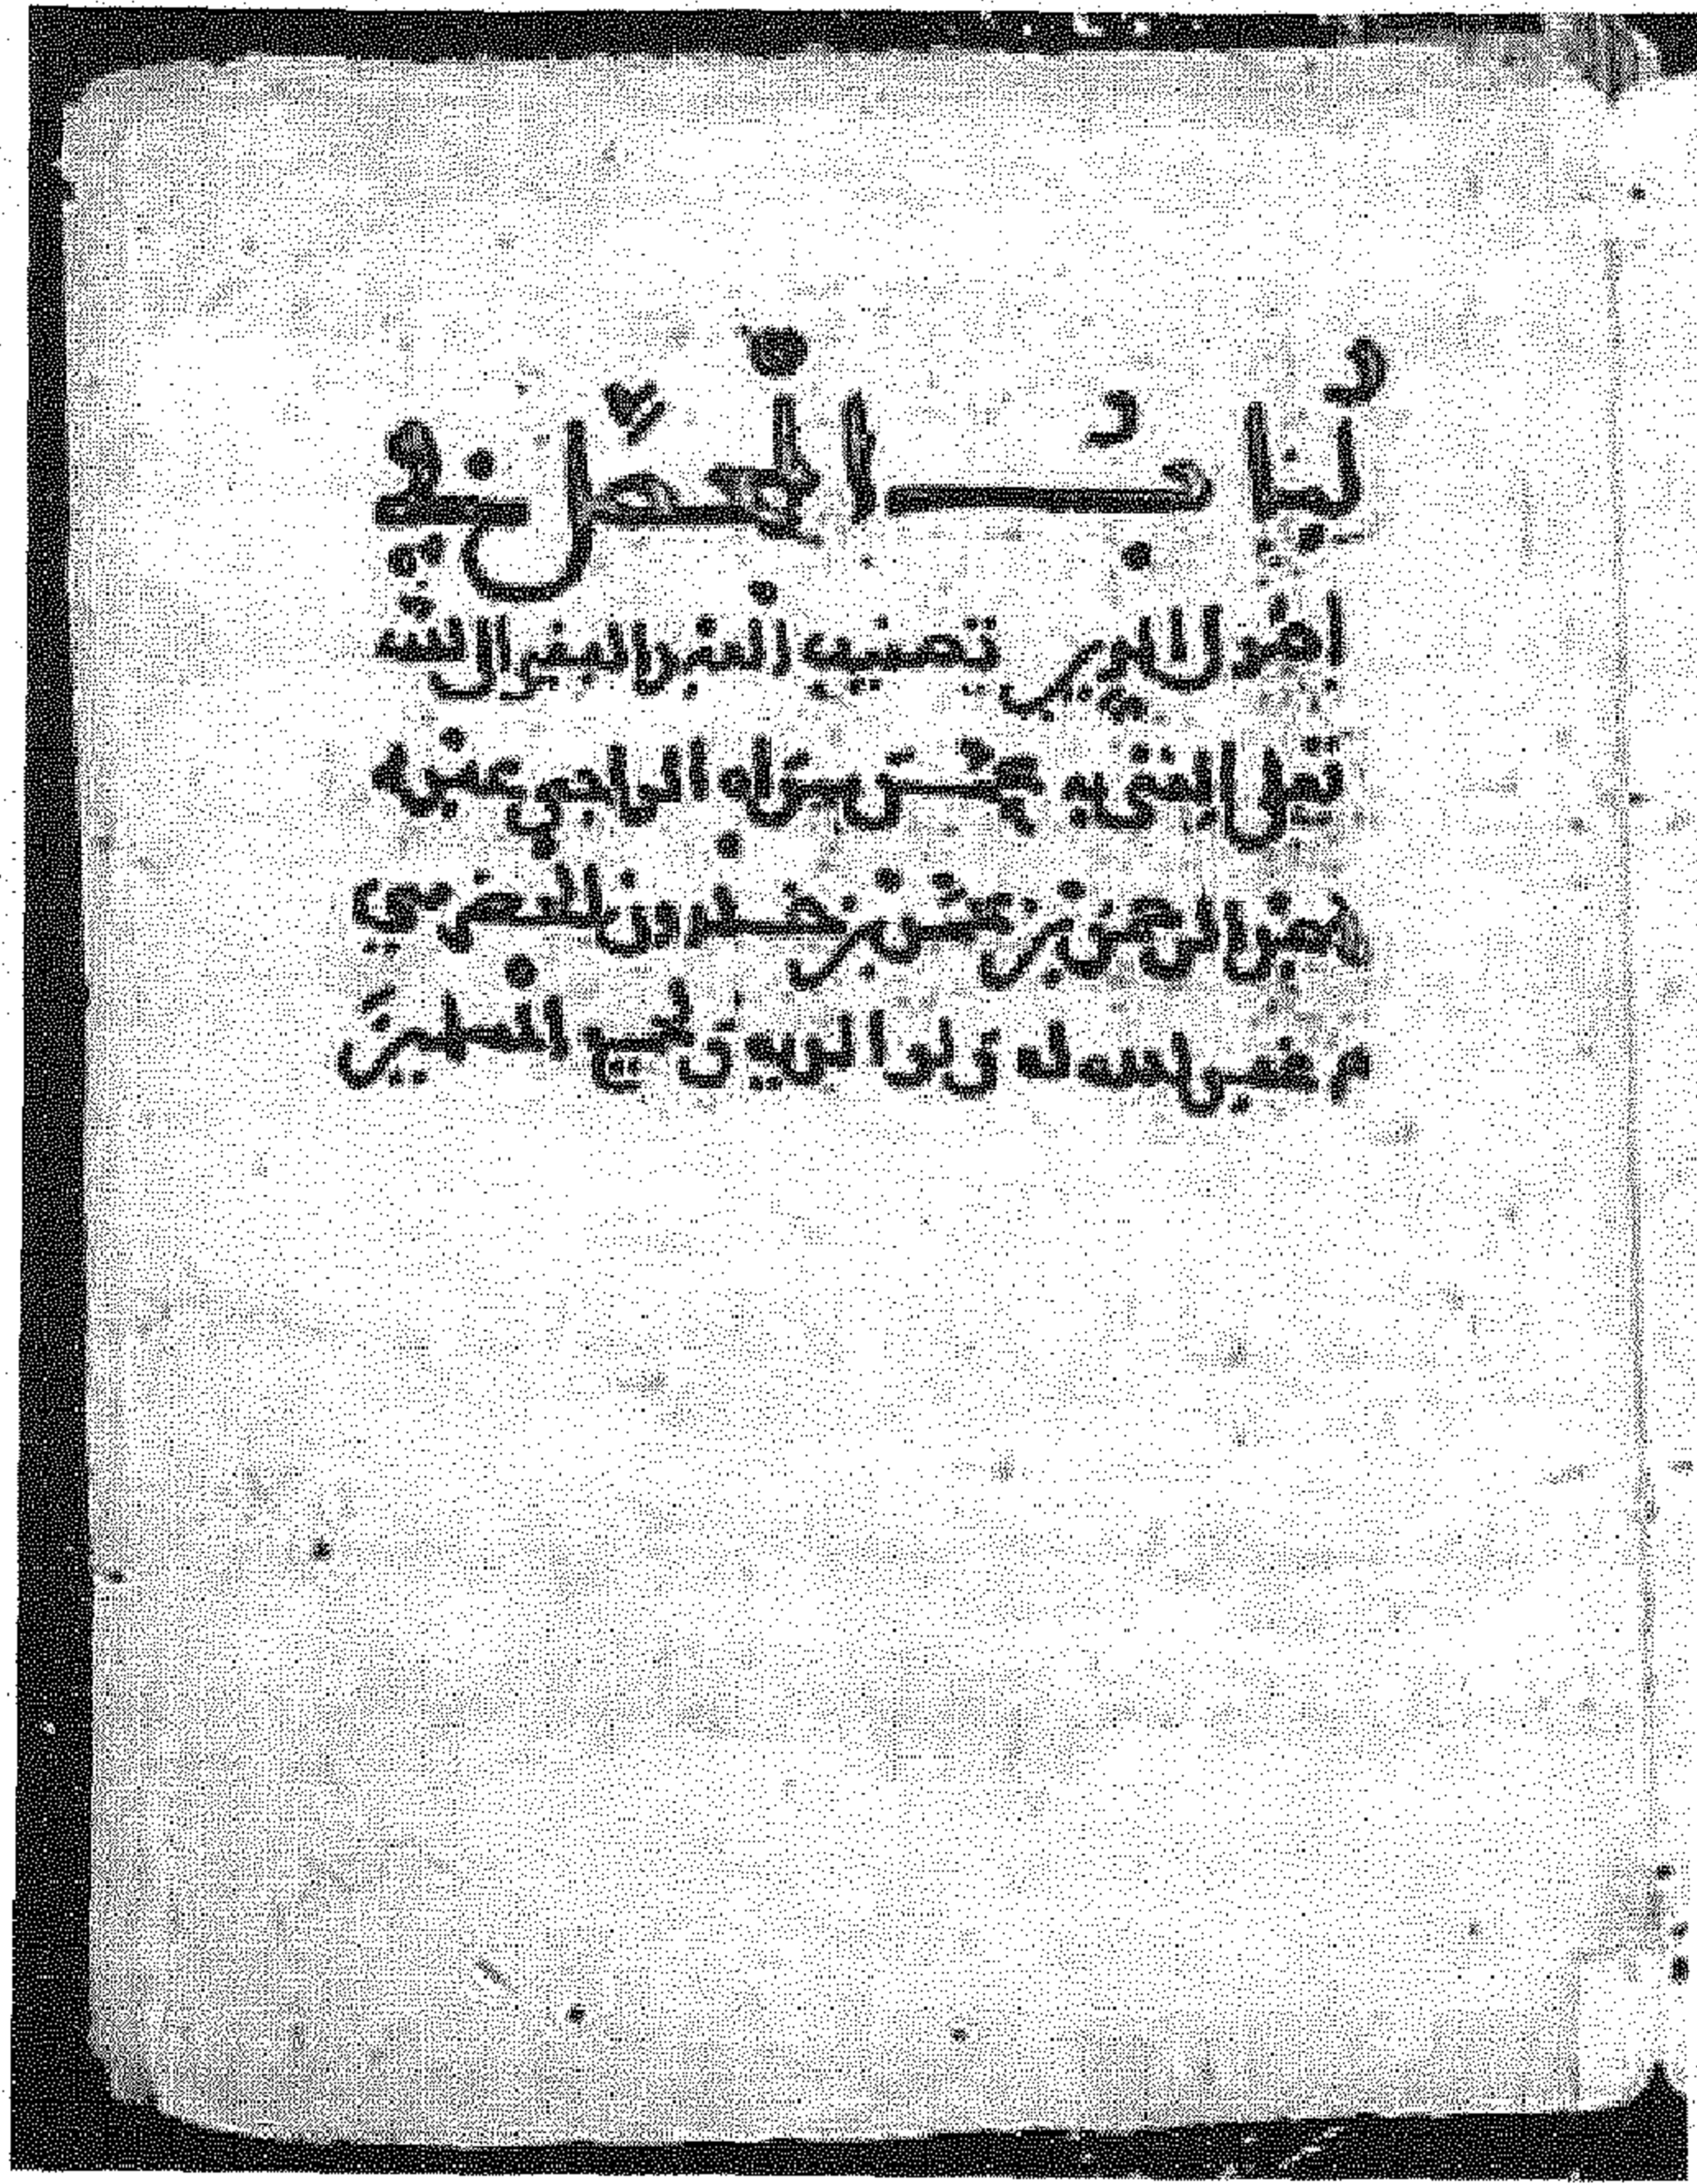 كتاب المحصل في
اصول الدين تصنيف العبد الفقير الى الله
تعلى الغني به عمن سواه الراجي عفوه
عبد الرحمن بن محمد بن خلدون الحضرمي
غفر الله له ولوالديه ولجميع المسلمين